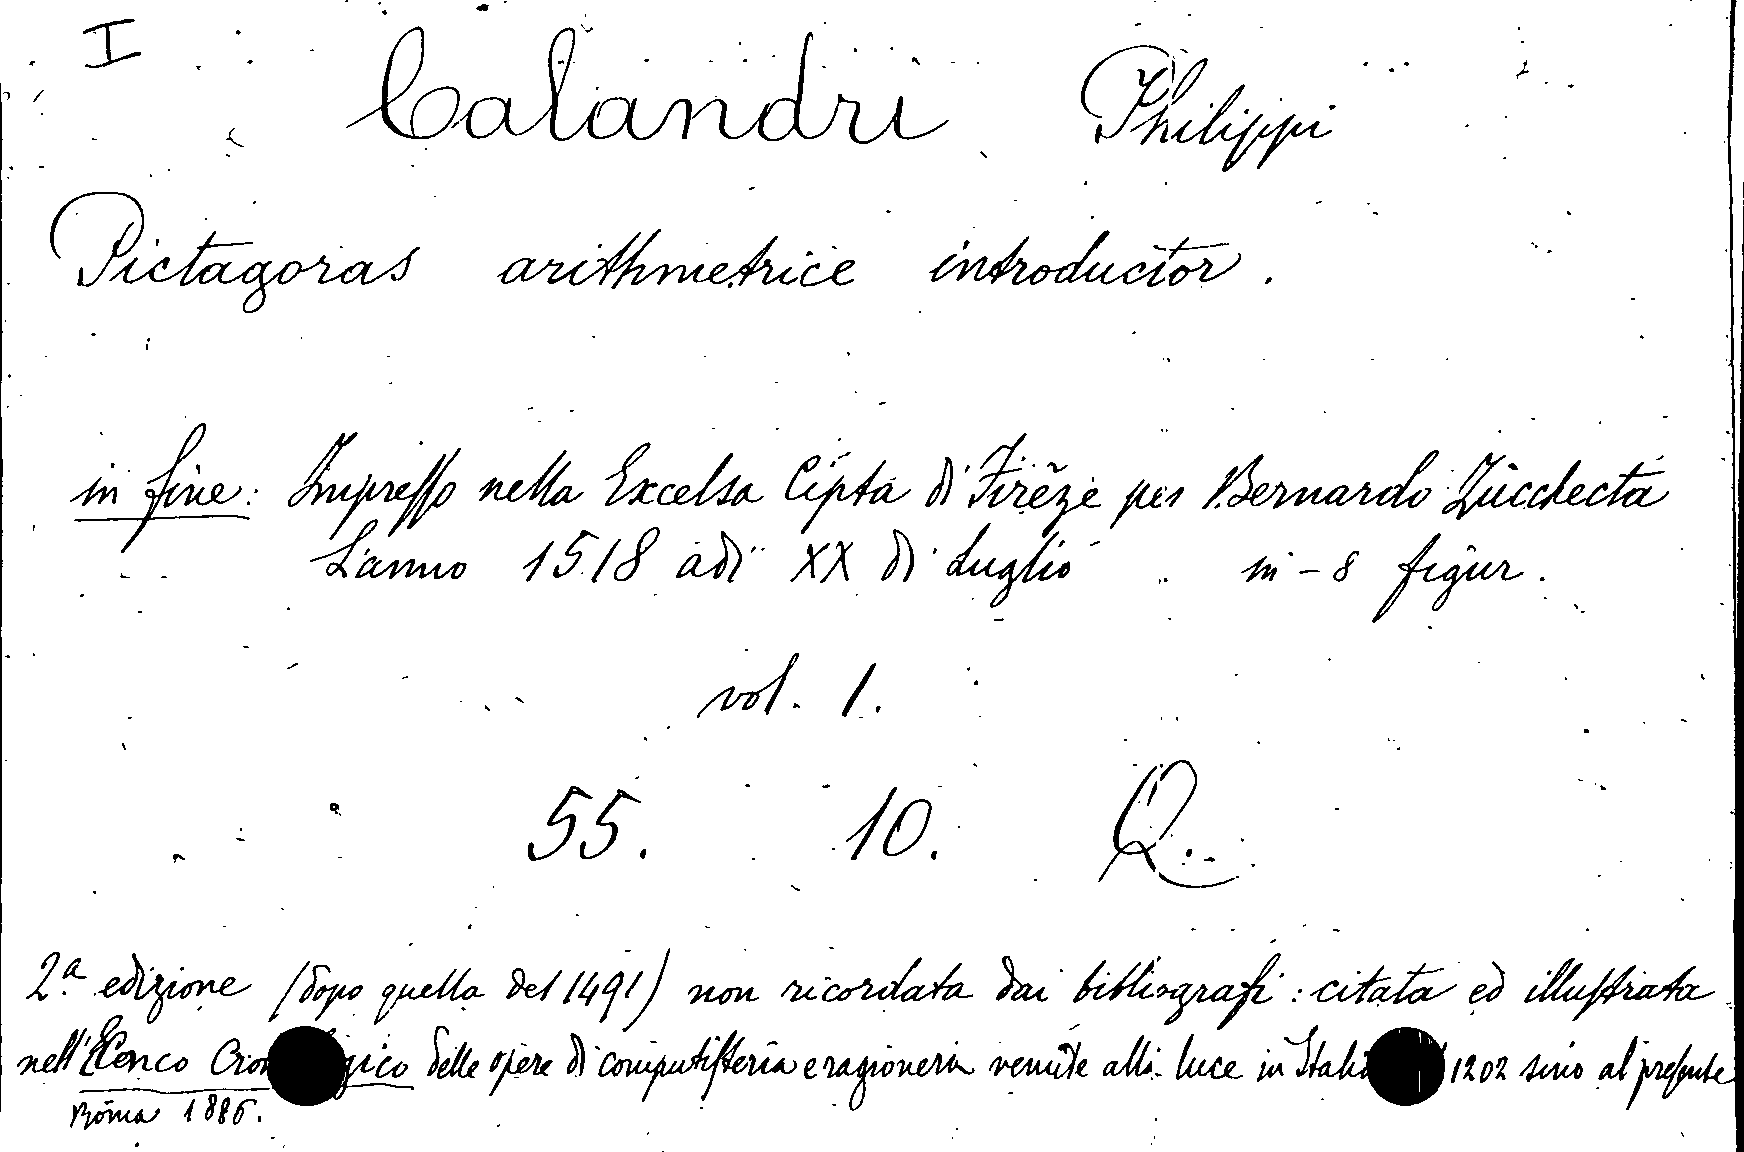 I
Calandri Philippi
Pictagoras arithmetrice introductor.
in fine: Impresso nella Excelsa Cipta di Firẽze per Bernardo Zucchecta
L'anno 1518 adi XX di Luglio in-8 figur.
vol. 1.
55. 10. Q.
2.a edizione (dopo quella del 1491) non ricordata dai bibliografi: citata ed illustrata
nell'Elenco Cron gico delle opere di computisteria e ragioneria venute alla luce in Itali 1202 sino al presente
Roma 1886.